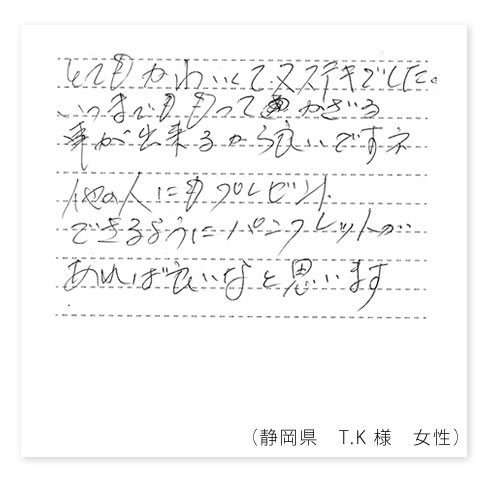 とてもかわいくてステキでした。
いつまでももってかざる
事が出来るから良いですネ
他の人にもプレゼント
できるようにパンフレットが
あれば良いなと思います
(静岡県 T.K 様 女性)